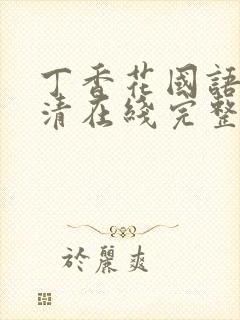 丁香花國語
清在綫完整
於麗爽